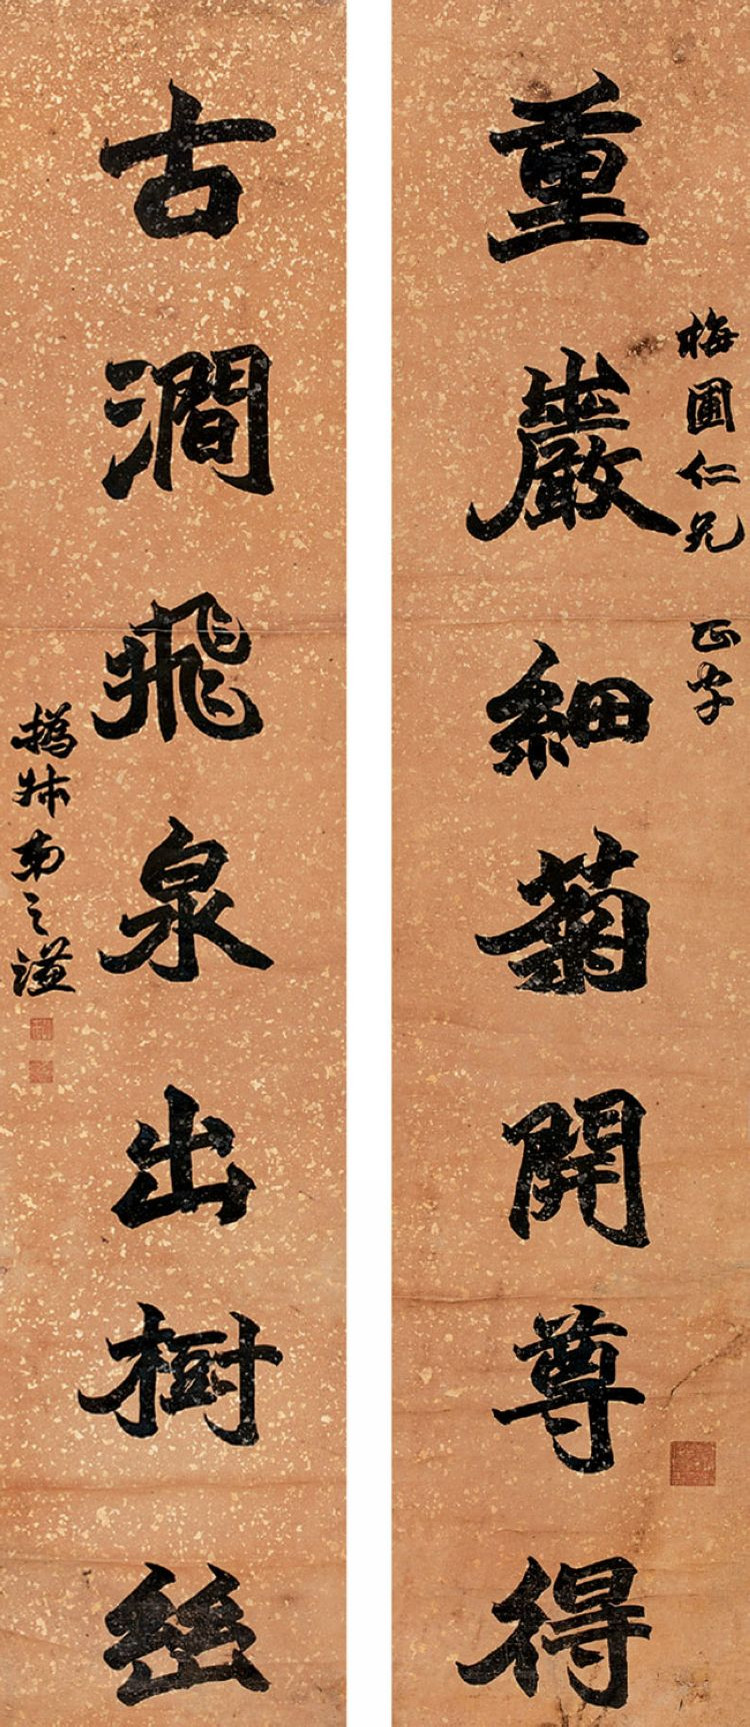 梅圃仁兄 正字
重巖細菊開尊得
古澗飛泉出樹幽
撝叔弟之謙